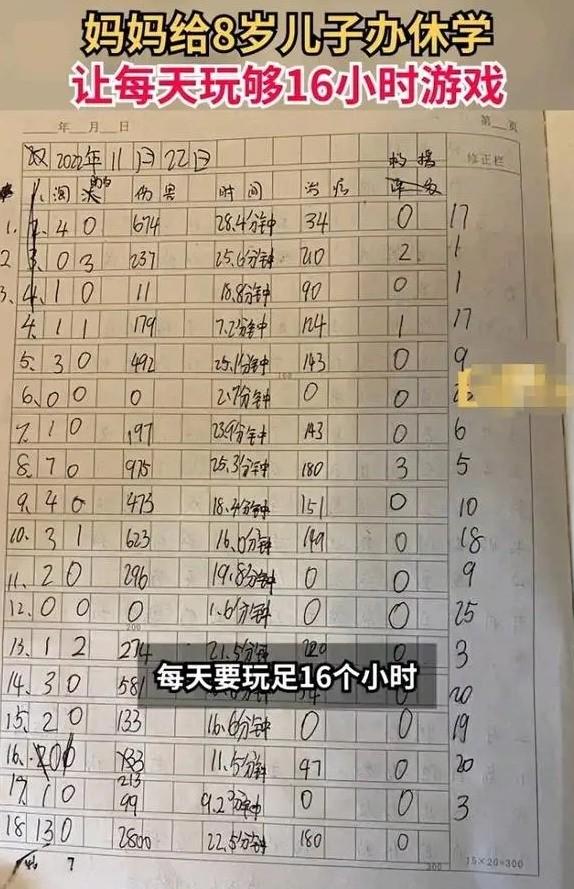 妈妈给8岁儿子办休学
让每天玩够16小时游戏
年 月 日 第 页
2022年11月22日 修正栏
伤害 时间 治疗
1. 2. 4 0 674 28.4分钟 34 0 17
2 3. 0 3 237 25.6分钟 210 2 1
3. 4. 1 0 11 18.8分钟 90 0 1
4. 1 1 179 7.2分钟 124 1 17
5. 3 0 492 25.1分钟 143 0 9
6. 0 0 0 2.7分钟 0 0
7. 1 0 197 23.9分钟 143 0 6
8. 7 0 975 25.3分钟 180 3 5
9. 4 0 473 18.4分钟 151 0 10
10. 3 1 623 16.0分钟 149 0 18
11. 2 0 296 19.8分钟 0 0 9
12. 0 0 0 1.6分钟 0 0 25
200
13. 1 2 274 21.5分钟 0 3
每天要玩足16个小时
14. 3 0 581 0 20
15. 2 0 133 16.6分钟 0 0 19
16. 11.5分钟 47 0 20
213
17. 1 0 99 9.2分钟 0 0 3
18 13 0 2800 22.5分钟 180 0
7 300 15×20=300